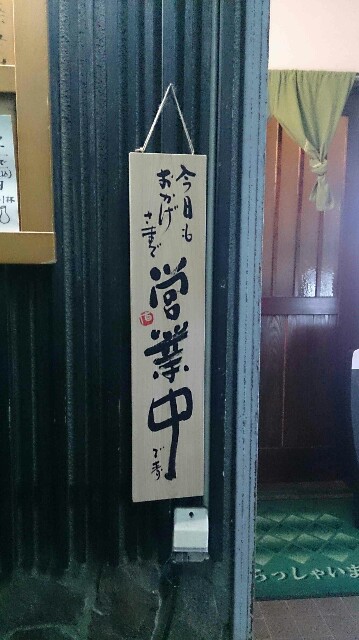 今日も
おかげ
さまで
営業中
で寿
らっしゃいま